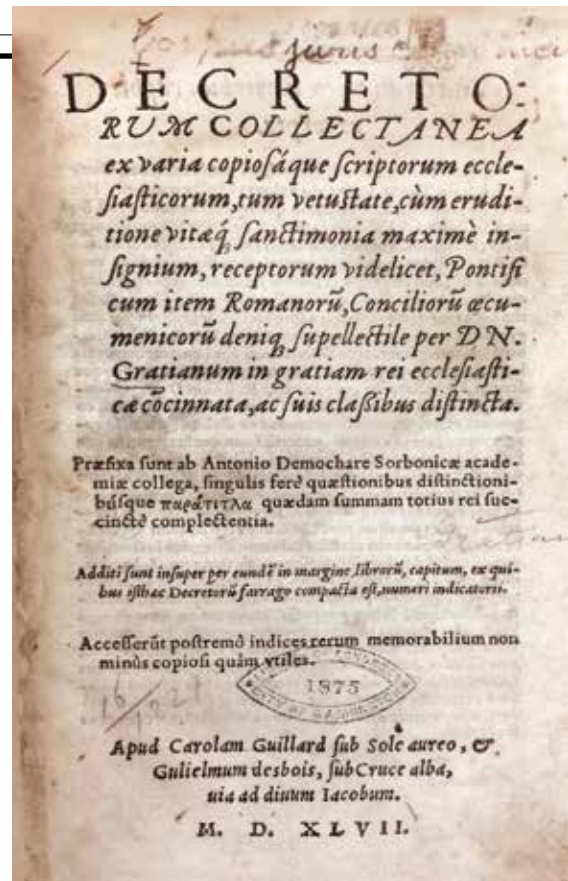 juris
DECRETO:
RUM COLLECTANEA
ex varia copiosáque scriptorum eccle-
siasticorum, tum vetustate, cùm erudi-
tione vitæq́ sanctimonia maximè in-
signium, receptorum videlicet, Pontifi
cum item Romanorũ, Conciliorũ œcu-
menicorũ deniq; supellectile per D N.
Gratianum in gratiam rei ecclesiasti-
cæ cõcinnata, ac suis classibus distincta.
Præfixa sunt ab Antonio Demochare Sorbonicæ acade-
miæ collega, singulis ferè quæstionibus distinctioni-
búsque παράτιτλα quædam summam totius rei suc-
cinctè complectentia.
Additi sunt insuper per eundẽ in margine, librorũ, capitum, ex qui-
bus isthæc Decretorũ farrago compacta est, numeri indicatorii.
Accesserũt postremò indices rerum memorabilium non
minùs copiosi quàm vtiles.
1875
Apud Carolam Guillard sub Sole aureo, &
Gulielmum desbois, sub Cruce alba,
uia ad diuum Iacobum.
M. D. XLVII.